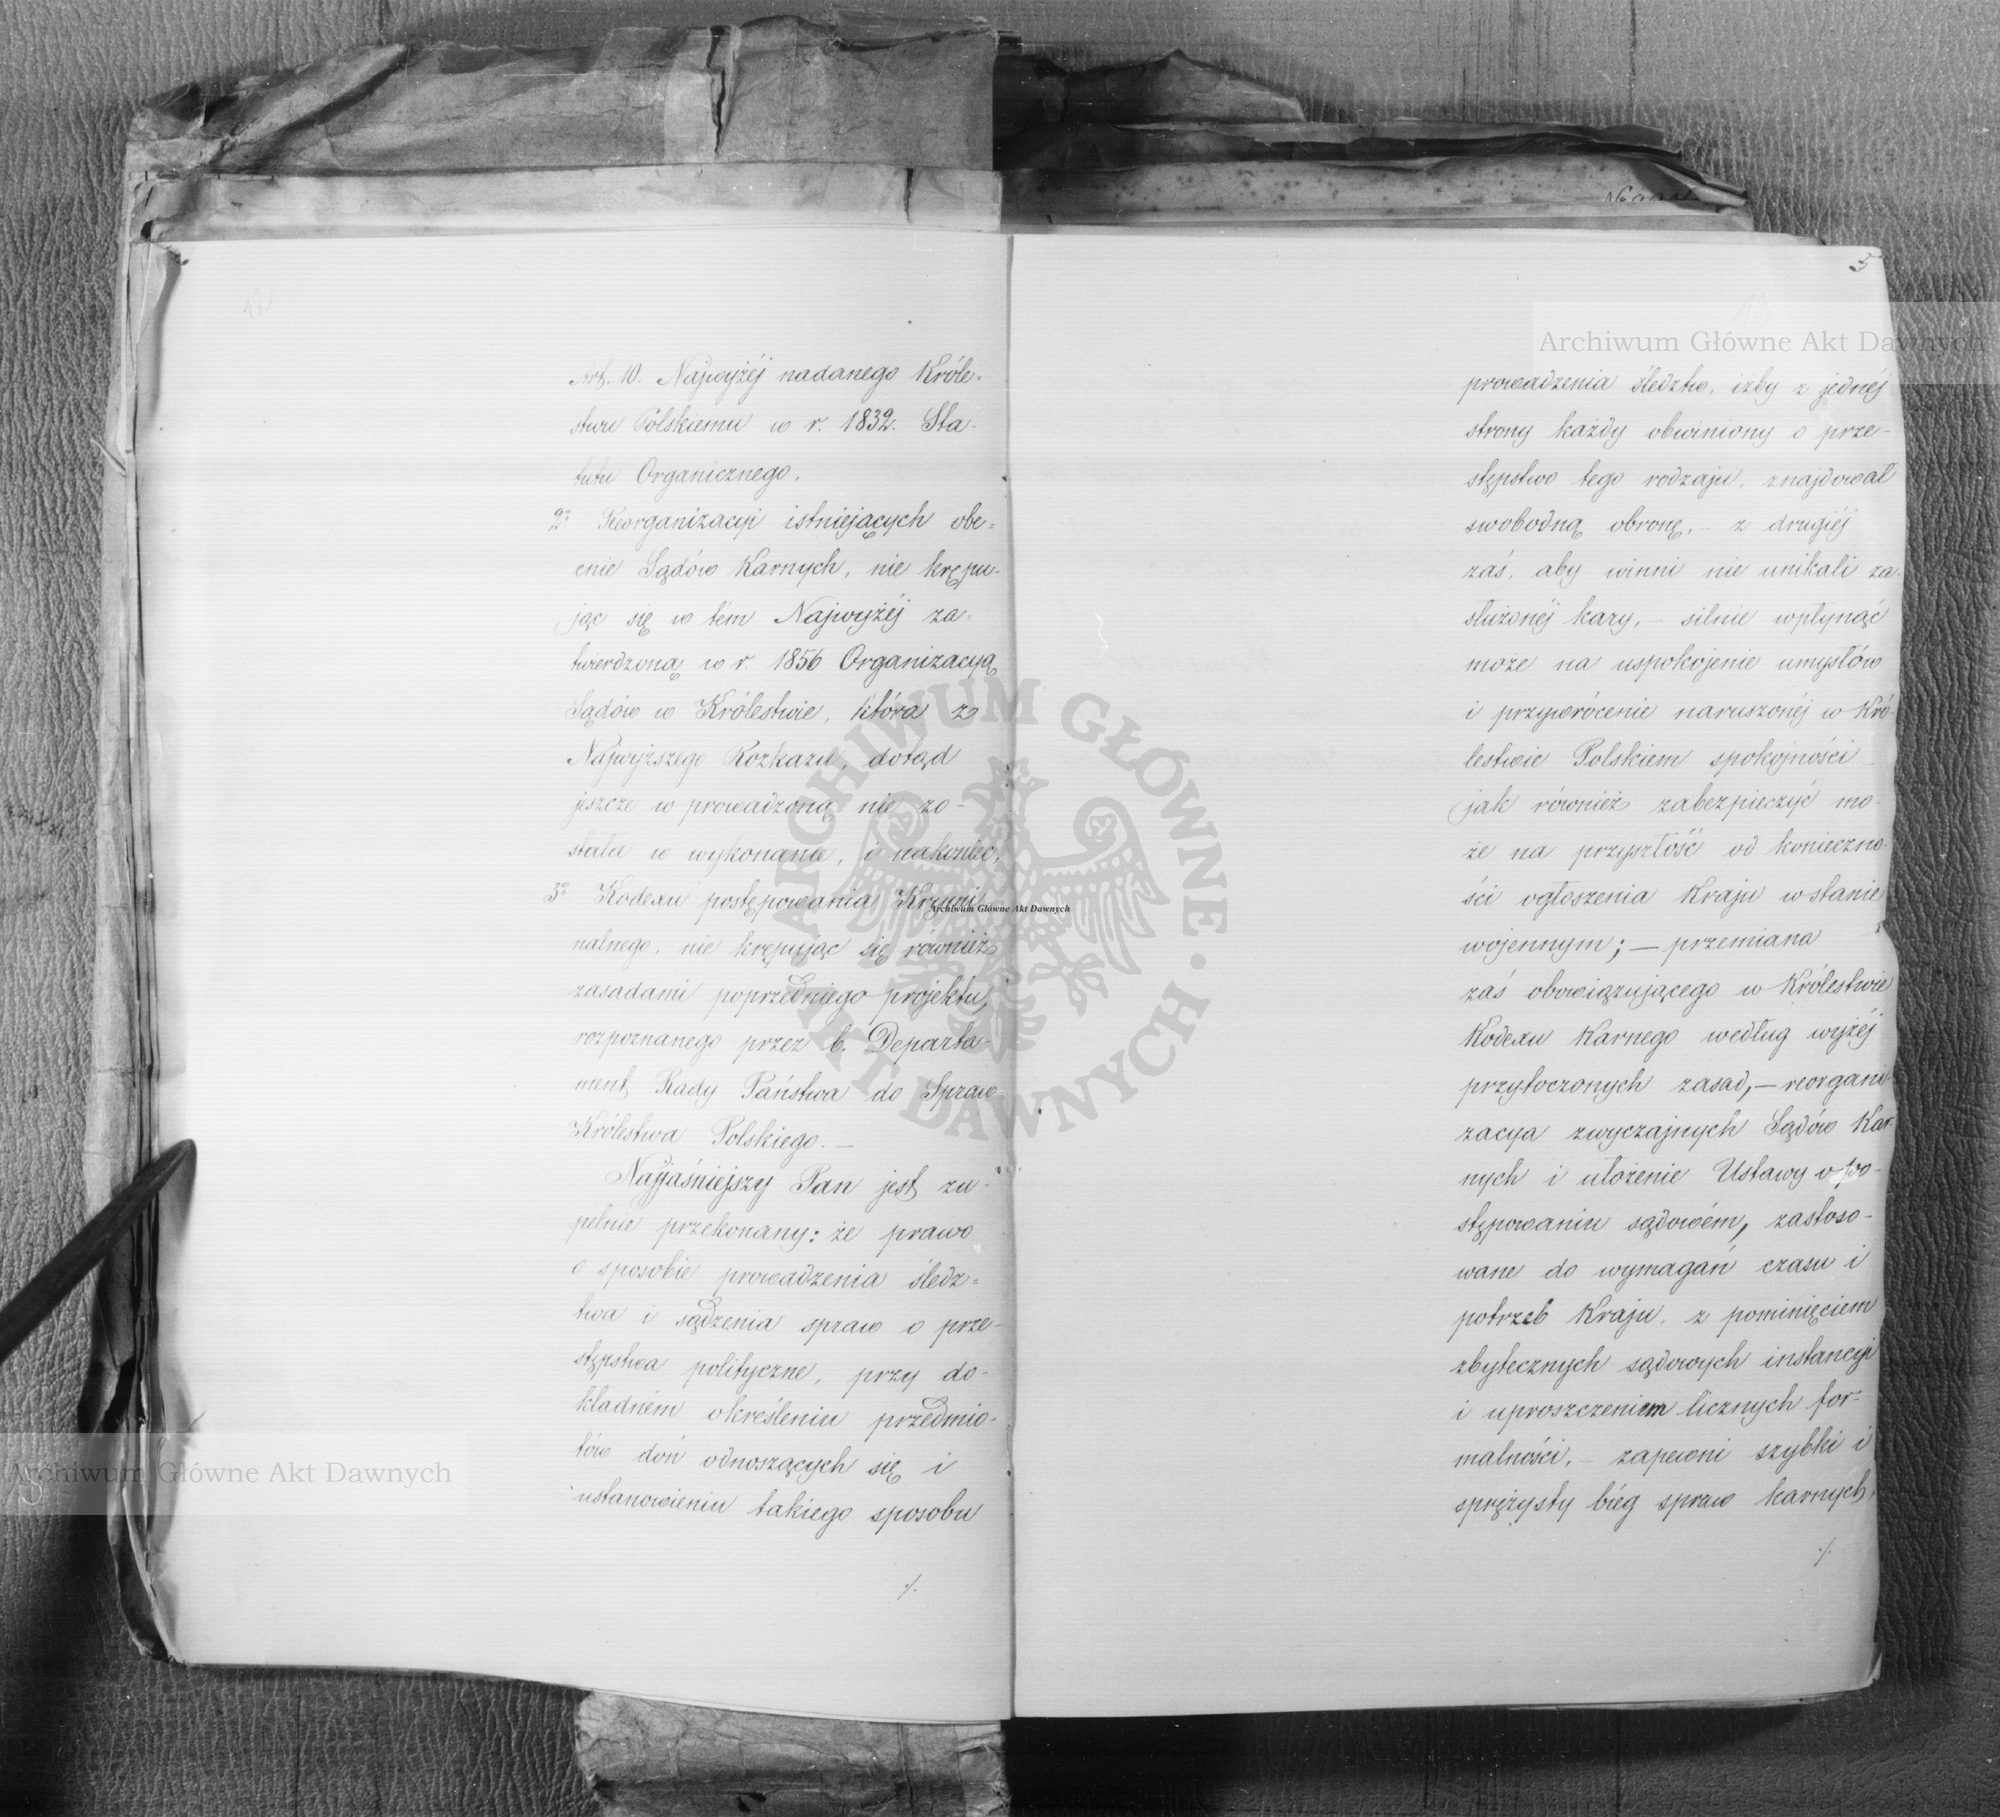 Art. 10. Najwyżéj nadanego Króle=
stwu Polskiemu w r. 1832. Sta-
tutu Organicznego.
2o Reorganizacyi istniejących obe=
cnie Sądów Karnych, nie krępu-
jąc się w tém Najwyżéj za=
twierdzoną w r. 1856 Organizacyą
Sądów w Królestwie, która z
Najwyższego Rozkazu, dotąd
jeszcze wprowadzoną nie zo-
stała w wykonanie, i nakoniec,
3o Kodexu postępowania Krymi-
nalnego, nie krępując się również
zasadami poprzedniego projektu,
rozpoznanego przez b. Departa-
ment Rady Państwa do Spraw
Królestwa Polskiego. —
Najjaśniejszy Pan jest zu-
pełnie przekonany: że prawo
o sposobie prowadzenia śledz=
twa i sądzenia spraw o prze-
stępstwa polityczne, przy do-
kładném określeniu przedmio-
tów doń odnoszących się i
ustanowieniu takiego sposobu
./.
5
prowadzenia śledztw, iżby z jednéj
strony każdy obwiniony o prze-
stępstwo tego rodzaju, znajdował
swobodną obronę, — z drugiéj
zaś, aby winni nie unikali za-
służonéj kary, — silnie wpłynąć
może na uspokojenie umysłów
i przywrócenie naruszonéj w Kró-
lestwie Polskiem spokojności
jak również zabezpieczyć mo-
że na przyszłość od konieczno-
ści ogłoszenia Kraju w stanie
wojennym; — przemiana
zaś obowiązującego w Królestwie
Kodexu Karnego według wyżéj
przytoczonych zasad, — reorgani-
zacya zwyczajnych Sądów Kar-
nych i ułożenie Ustawy o po-
stępowaniu sądowém, zastoso-
wane do wymagań czasu i
potrzeb Kraju, z pominięciem
zbytecznych sądowych instancyi
i uproszczeniem licznych for-
malności, — zapewni szybki i
sprężysty bieg spraw karnych,
./.
Archiwum Główne Akt Dawnych
Archiwum Główne Akt Dawnych
Archiwum Główne Akt Dawnych
ARCHIWUM GŁÓWNE · AKT DAWNYCH ·